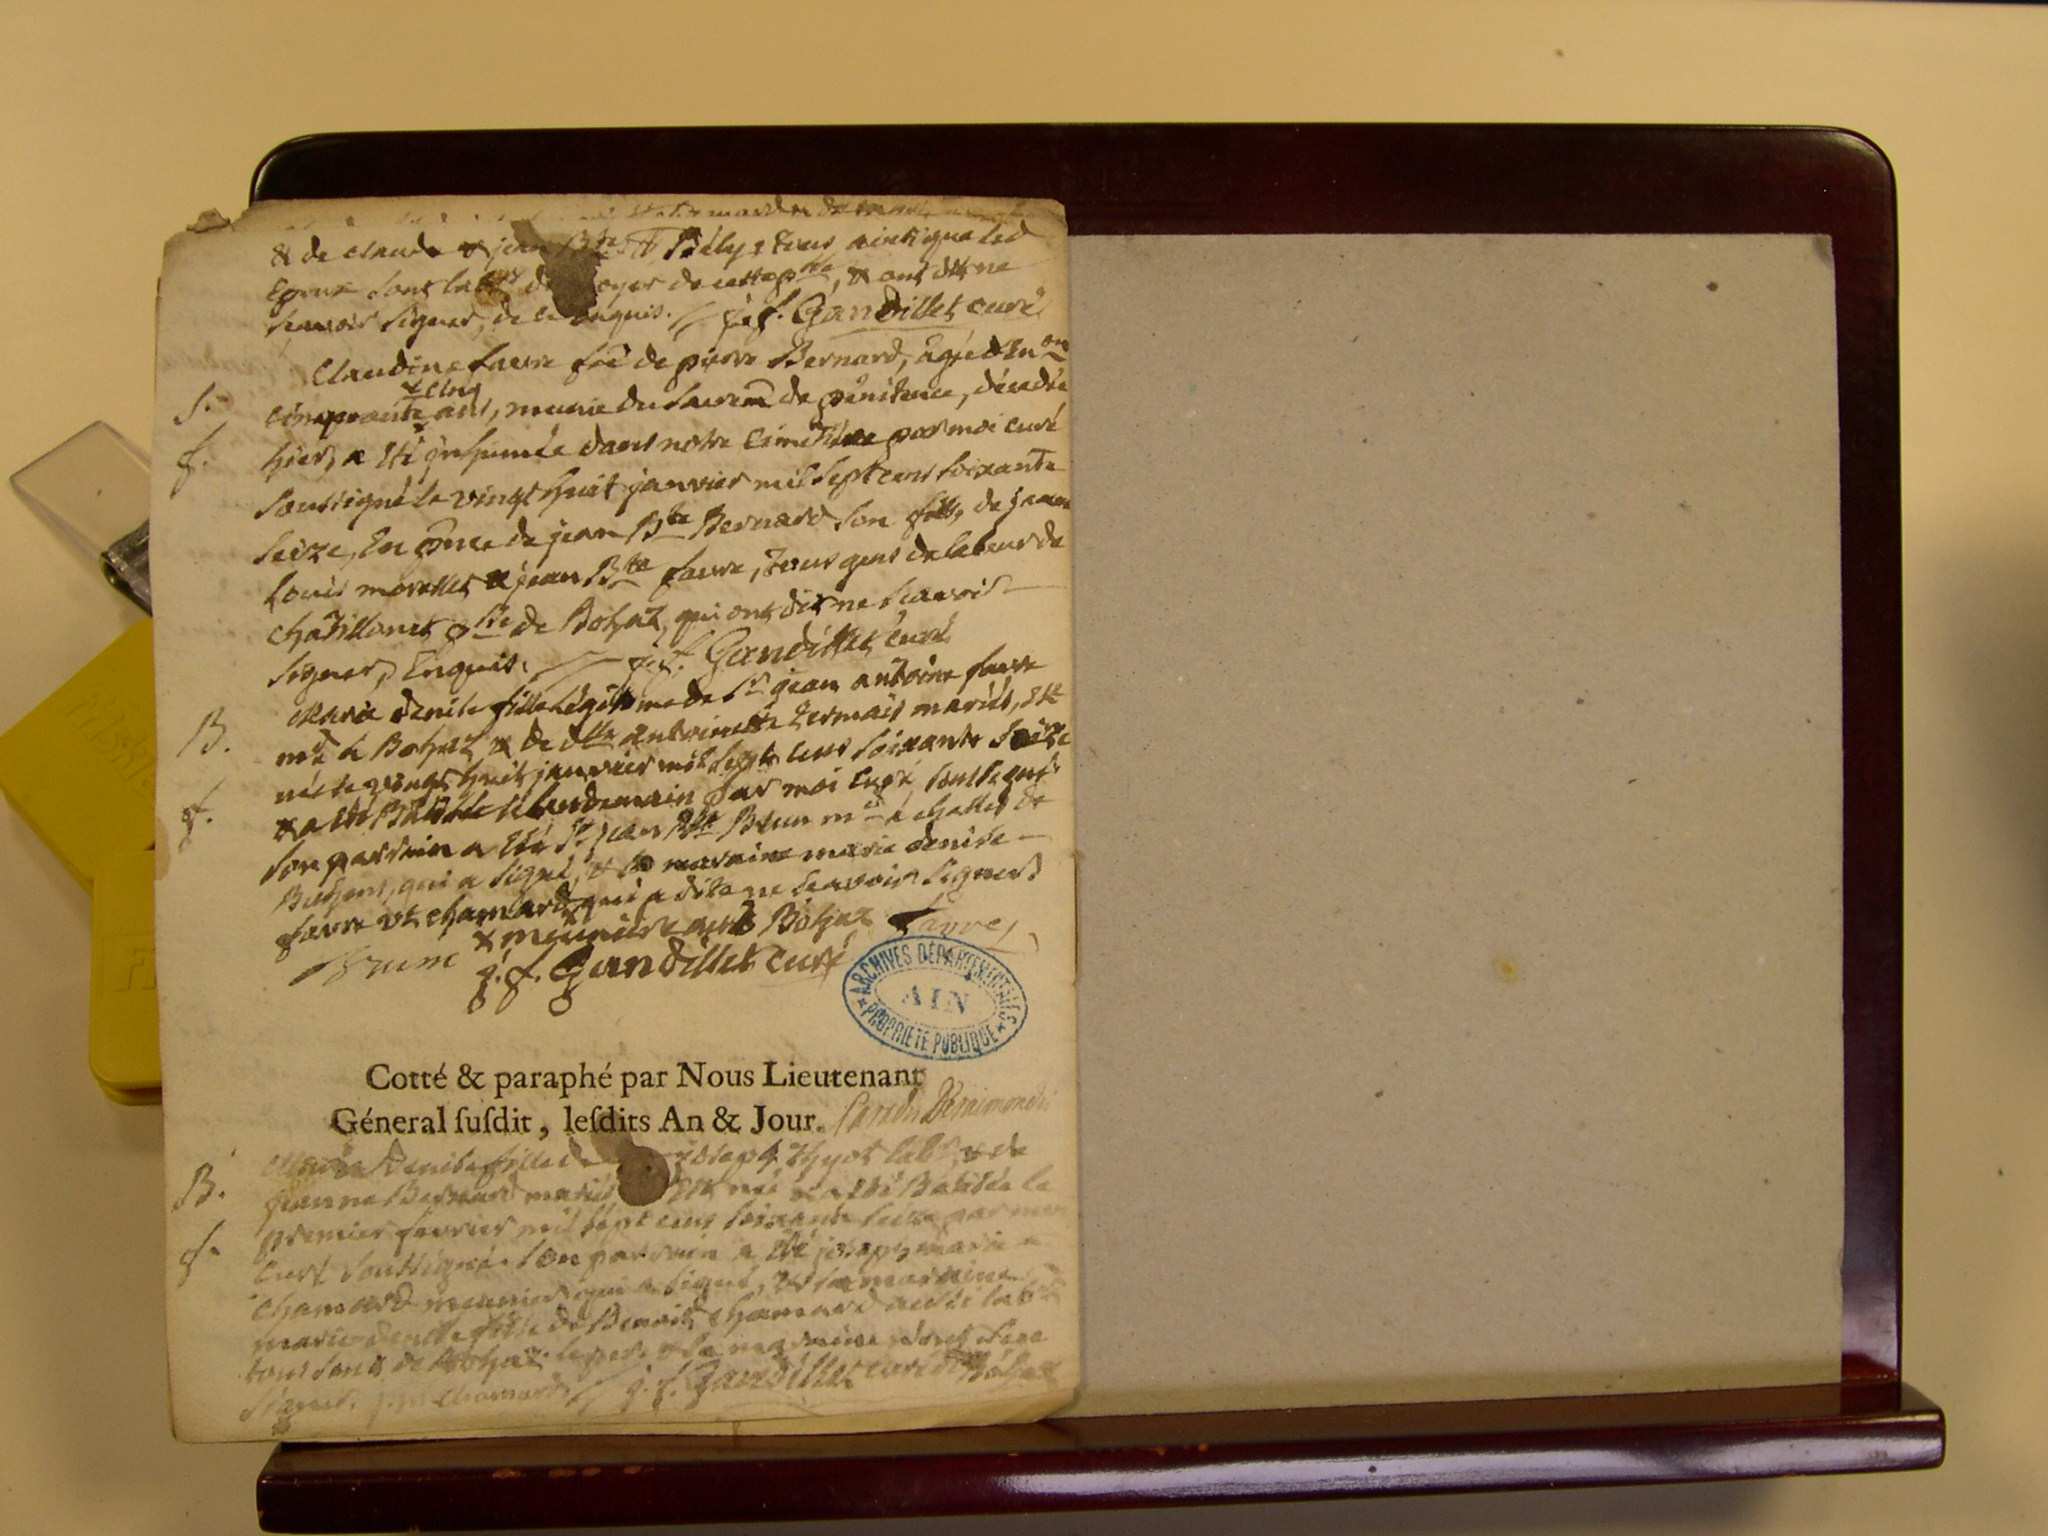 & de claude & jean Bte Bély, tous ainsi que les
Epoux sont labrs de oyer de cette psse, & ont dit ne
scavoir signer, de ce enquis. j. f. Gandillet curé
Claudine favre fe de pierre Bernard, agée d'En on
S. cinquante & cinq ans, munie du sacrem de pénitence, décedée
f. hier, a Eté inhumée dans notre cimetiere par moi curé
soussigné le vingt huit janvier mil sept cens soixante
seize, En pnce de jean Bte Bernard son fils, de jean
Louis morellet & jean Bte favre, tous gens de labeur de
châtillonet psse de Bohaz, qui ont dit ne scavoir
signer, Enquis. j. f. Gandillet curé
B. Marie denise fille Légitime de Sr jean antoine favre
md à Bohaz & de dlle antoinette mariés, Est
née le vingt huit janvier mil sept cens soixante seize
f. & a Eté Batisée le lendemain par moi curé soussigné
son parrein a Eté Sr jean Bte Brun md à challes de
Bohens, qui a signé, & la marreine marie denise
favre ve chamard qui a dite ne scavoir signer
& meuniere audt Bohaz favre
Brun j. f. Gandillet curé
ARCHIVES DÉPARTEMENTALES
AIN
PROPRIÉTÉ PUBLIQUE
Cotté & paraphé par Nous Lieutenant
Géneral ſuſdit, leſdits An & Jour.
Marie Denise fille de joseph Thyot labr, & de
B. jeanne Bernard mariés Est née & a Eté Batisée le
premier fevrier mil sept cens soixante seize par moi
f. curé soussigné. son parrein a Eté joseph marie
chamard meunier qui a signé, & sa marreine
marie denise fille de Benoit chamard aussi labr
tous sont de Bohaz. le pere & la marreine n'ont sceu
signer. j. m chamard j. f. Gandillet curé de Bohaz